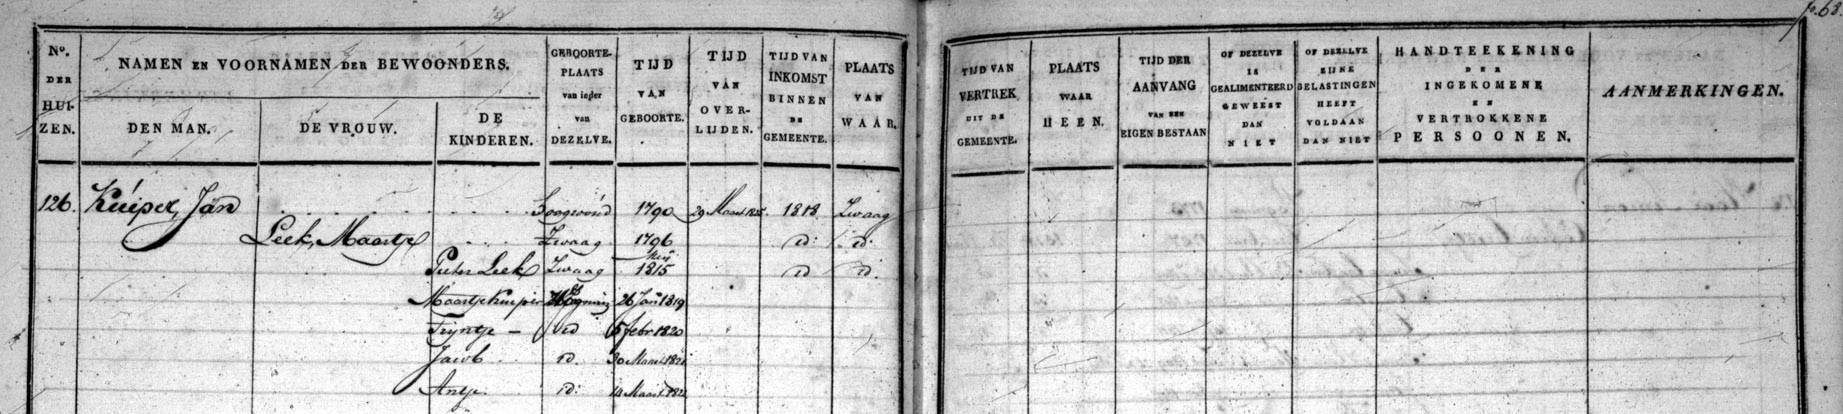 fo. 63.
No. DER HUI-ZEN.
NAMEN EN VOORNAMEN DER BEWOONDERS.
DEN MAN.
DE VROUW.
DE KINDEREN.
GEBOORTE-PLAATS van ieder van DEZELVE.
TIJD VAN GEBOORTE.
TIJD VAN OVER-LIJDEN.
TIJD VAN INKOMST BINNEN DE GEMEENTE.
PLAATS VAN WAAR.
TIJD VAN VERTREK UIT DE GEMEENTE.
PLAATS WAAR HEEN.
TIJD DER AANVANG VAN EEN EIGEN BESTAAN
OF DEZELVE IS GEALIMENTEERD GEWEEST DAN NIET
OF DEZELVE ZIJNE BELASTINGEN HEEFT VOLDAAN DAN NIET
HANDTEEKENING DER INGEKOMENE EN VERTROKKENE PERSOONEN.
AANMERKINGEN.
126. Kuiper, Jan 1790 29 Maart 1825 1818. Zwaag
Leek, Maartje Zwaag 1796 id: id:
Pieter Leek Zwaag Meij 1815 id id
Maartje Kuiper 26 Jan 1819
Trijntje - id 5 febr 1820
Jacob id. 30 Maart
Antje id: 14 Maart